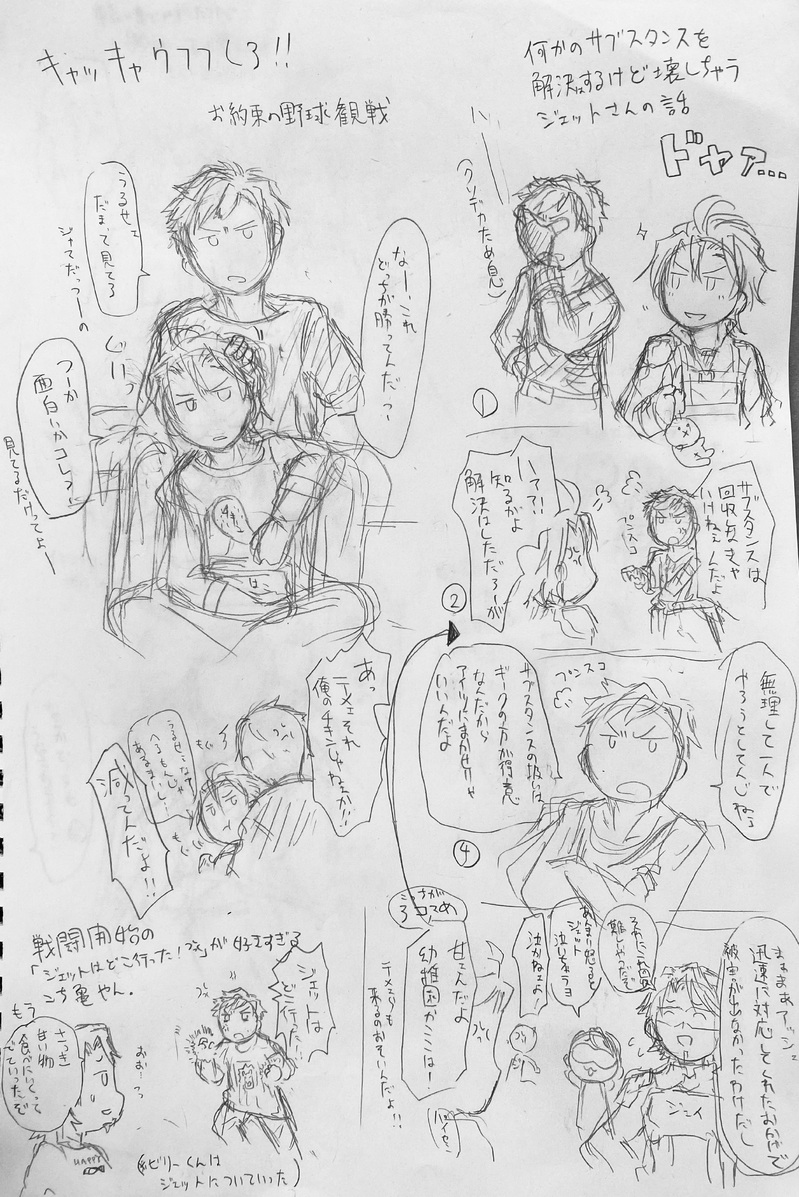 キャッキャウフフしろ!!
お約束の野球観戦
うるせェ
だまって見てろ
ジャマだっつーの
ぐいっ
なーこれ
どっちが勝ってんだっつ
つーか
面白いかコレ
見てるだけってよー
あっ
テメェそれ
俺のチキンじゃねぇか!!
うるせェなァ
へるもんじゃ
あるまいし
もぐ
もぐ
減ってんだよ!!
戦闘開始の
「ジェットはどこ行った!」が好きすぎる
こち亀やん。
ジェットは
どこ行った!!
おおーっ
もう
さっき
甘い物
食べにいくって
でていったぞ
HAPPY
(ビリーくんは
ジェットについていった)
何かのサブスタンスを
解決はするけど壊しちゃう
ジェットさんの話
ドヤァ…
(クソデカため息)
①
サブスタンスは
回収しなきゃ
いけねぇんだよ
プンスコ
いてて
知るかよ
解決はしただろーが
②
無理して一人で
やろうとしてんじねぇ
プンスコ
サブスタンスの扱いは
ギークの方が得意
なんだから
アイツにまかせりゃ
いいんだよ
④
まぁまぁアッシュ
迅速に対応してくれたおかげで
被害が出なかったわけだし
あんまり怒ると
ジェット
泣いちゃうヨ
泣かねェよ
ジェイ
甘ェんだよ
幼稚園かここは!
テメェらも
来るのおそいんだよ!!